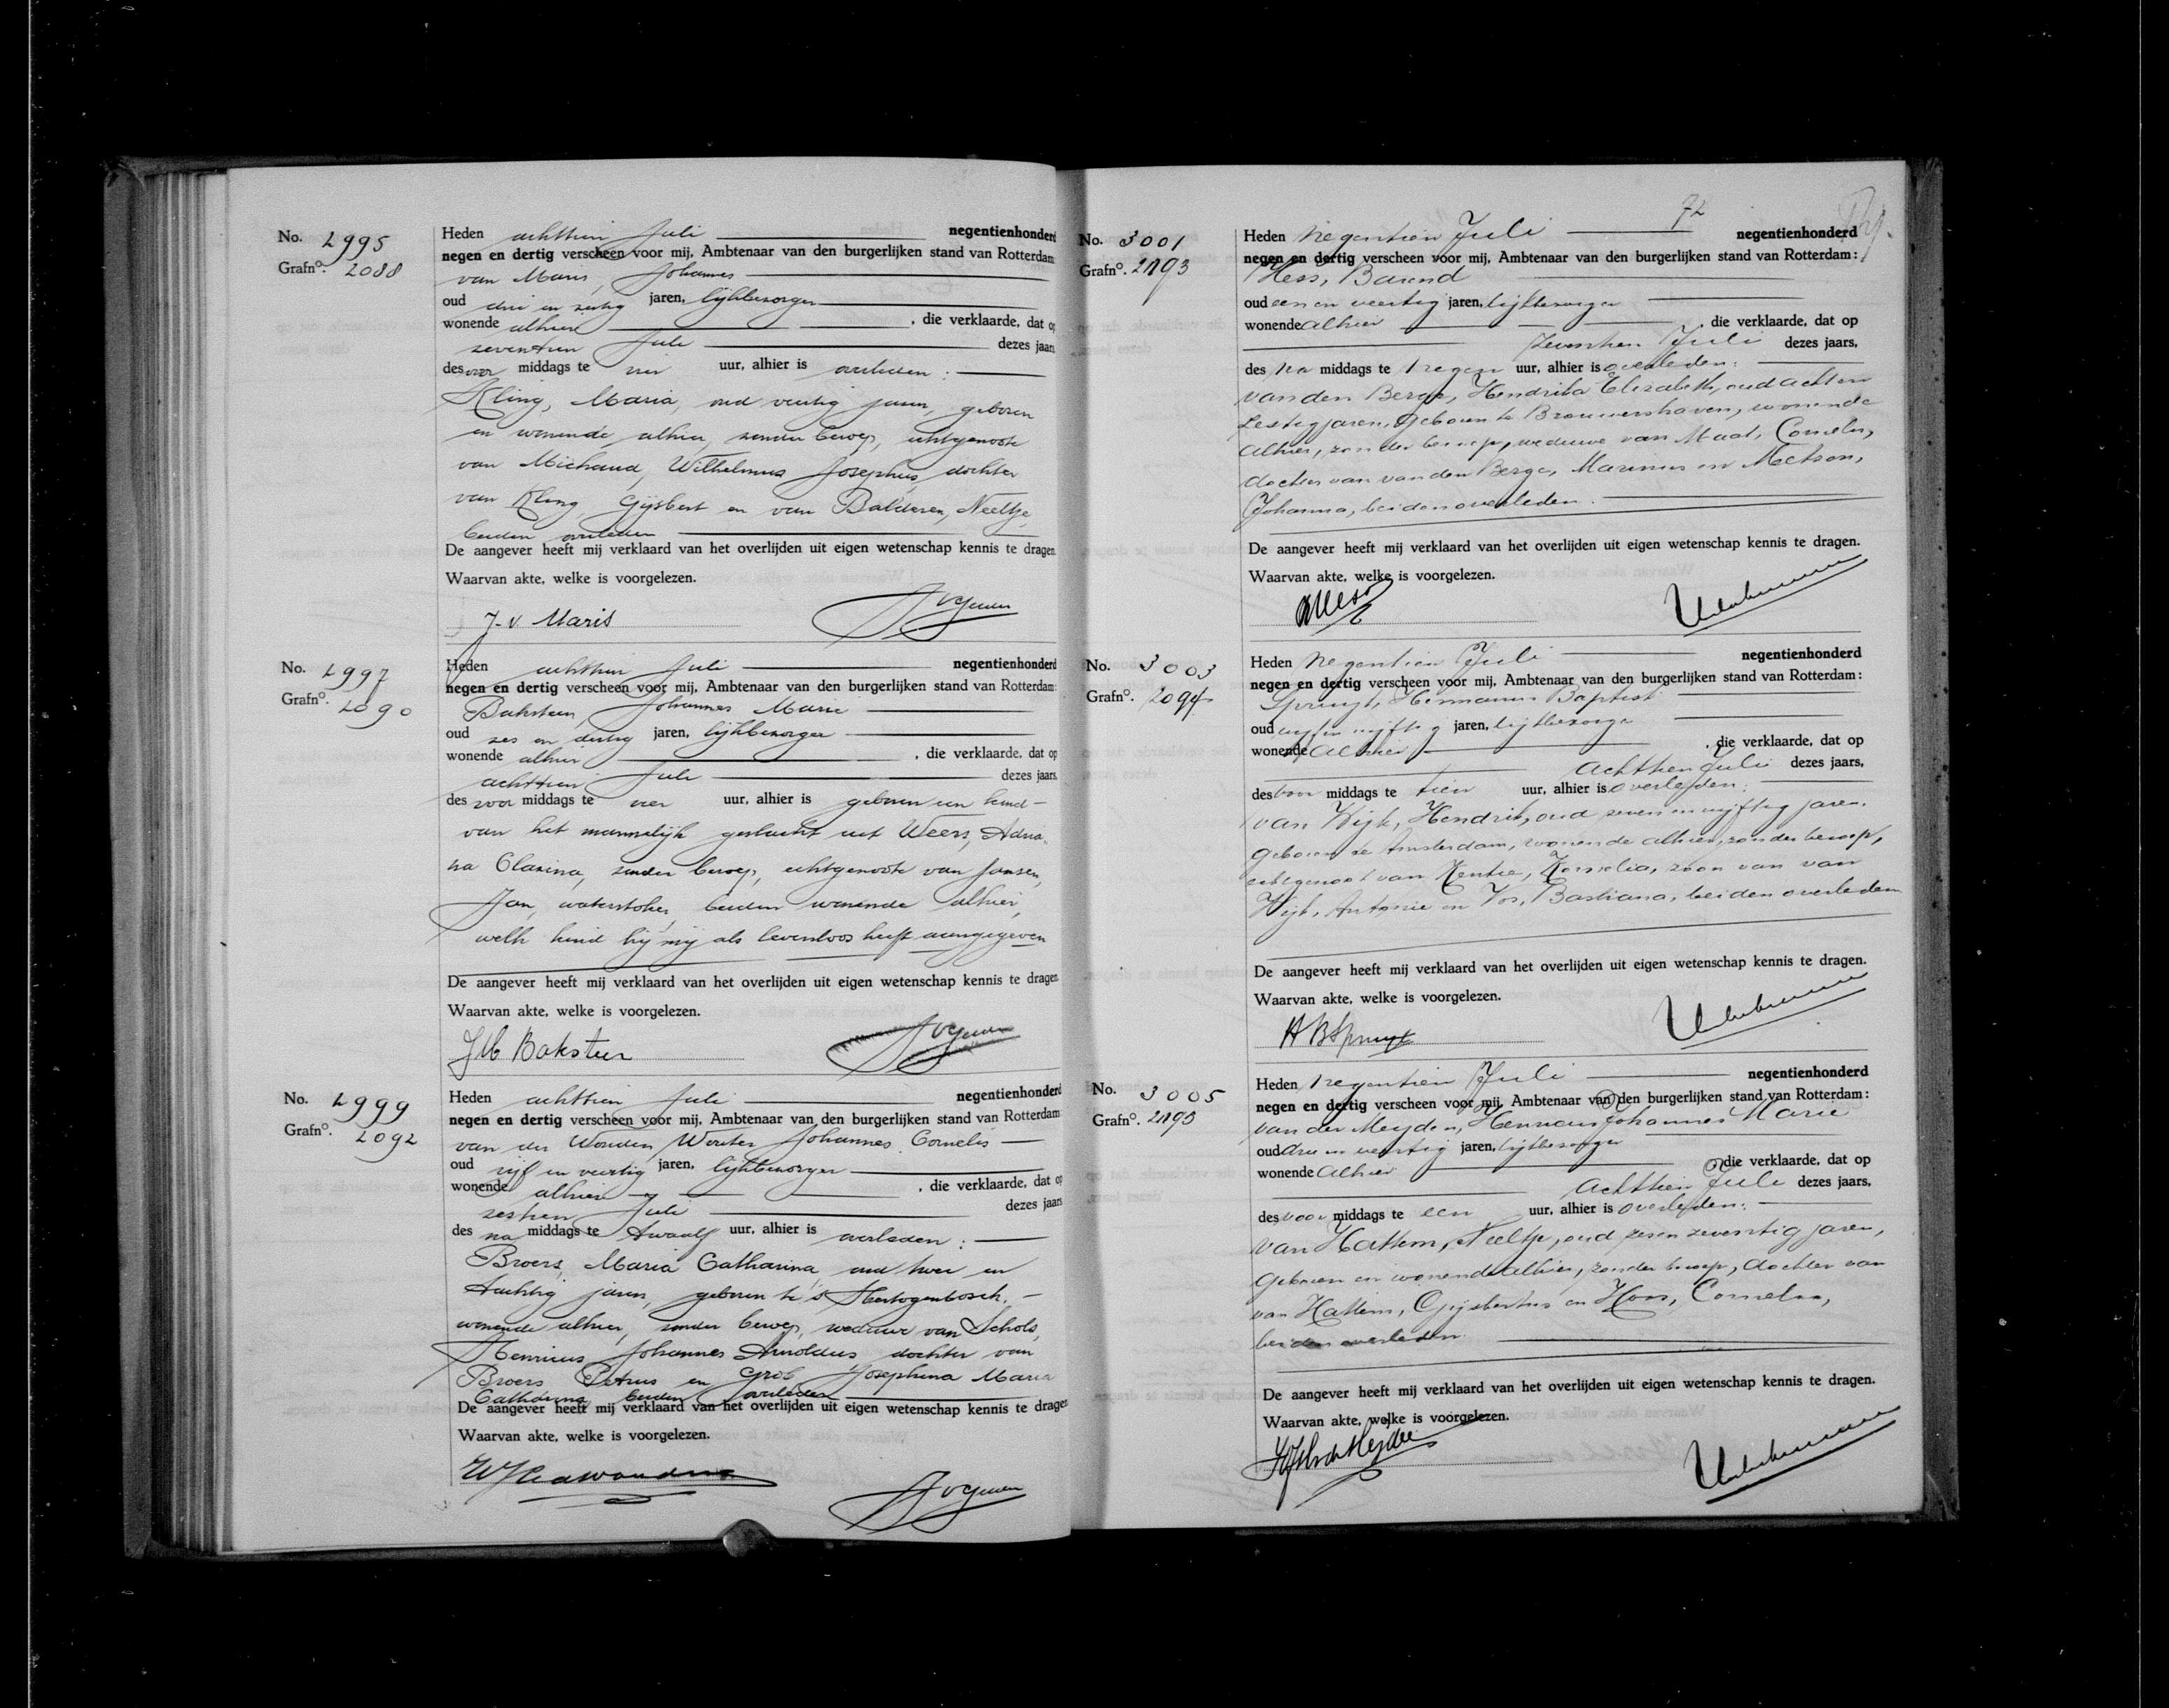 No. 2995
Grafno. 2088
Heden achttien Juli negentienhonderd
negen en dertig verscheen voor mij, Ambtenaar van den burgerlijken stand van Rotterdam
van Maris, Johannes
oud drie en zestig jaren, lijkbezorger
wonende alhier , die verklaarde, dat op
zeventien Juli dezes jaars
des voor middags te vier uur, alhier is overleden :
Kling, Maria, oud veertig jaren, geboren
en wonende alhier, zonder beroep, echtgenoote
van Michaud, Wilhelmus Josephus, dochter
van Kling Gijsbert en van Balderen, Neeltje,
beiden overleden
De aangever heeft mij verklaard van het overlijden uit eigen wetenschap kennis te dragen.
Waarvan akte, welke is voorgelezen.
J. v. Maris
No. 2997
Grafno. 2090
Heden achttien Juli negentienhonderd
negen en dertig verscheen voor mij, Ambtenaar van den burgerlijken stand van Rotterdam:
Baksteen, Johannes Marie
oud zes en dertig jaren, lijkbezorger
wonende alhier , die verklaarde, dat op
achttien Juli dezes jaars,
des voor middags te vier uur, alhier is geboren een kind
van het mannelijk geslacht uit Weers, Adria-
na Clasina, zonder beroep, echtgenoote van Jansen,
Jan, waterstoker, beiden wonende alhier,
welk kind hij mij als levenloos heeft aangegeven
De aangever heeft mij verklaard van het overlijden uit eigen wetenschap kennis te dragen
Waarvan akte, welke is voorgelezen.
JM Baksteen
No. 2999
Grafno. 2092
Heden achttien Juli negentienhonderd
negen en dertig verscheen voor mij, Ambtenaar van den burgerlijken stand van Rotterdam
van der Wouden, Wouter Johannes Cornelis
oud vijf en veertig jaren, lijkbezorger
wonende alhier , die verklaarde, dat op
zestien Juli dezes jaars
des na middags te twaalf uur, alhier is overleden :
Broers, Maria Catharina, oud twee en
tachtig jaren, geboren te 's Hertogenbosch,
wonende alhier, zonder beroep, weduwe van Schols,
Henricus Johannes Arnoldus dochter van
Broers Petrus en Grob Josephina Maria
Catharina, beiden overleden
De aangever heeft mij verklaard van het overlijden uit eigen wetenschap kennis te dragen
Waarvan akte, welke is voorgelezen.
72
No. 3001
Grafno. 2093
Heden negentien Juli negentienhonderd
negen en dertig verscheen voor mij, Ambtenaar van den burgerlijken stand van Rotterdam:
Hess, Barend
oud een en veertig jaren, lijkbezorger
wonende alhier , die verklaarde, dat op
zeventien Juli dezes jaars,
des na middags te negen uur, alhier is overleden:
van den Berge, Hendrika Elizabeth, oud acht en
zestig jaren, geboren te Brouwershaven, wonende
alhier, zonder beroep, weduwe van Maat, Cornelis,
dochter van van den Berge, Marinus en Metson,
Johanna, beiden overleden.
De aangever heeft mij verklaard van het overlijden uit eigen wetenschap kennis te dragen.
Waarvan akte, welke is voorgelezen.
No. 3003
Grafno. 2094
Heden negentien Juli negentienhonderd
negen en dertig verscheen voor mij, Ambtenaar van den burgerlijken stand van Rotterdam:
Spruijt, Hermanus Baptist
oud vijf en vijftig jaren, lijkbezorger
wonende alhier , die verklaarde, dat op
achttien Juli dezes jaars,
des voor middags te tien uur, alhier is overleden:
van Wijk, Hendrik, oud zeven en vijftig jaren,
geboren te Amsterdam, wonende alhier, zonder beroep,
echtgenoot van Kentie, Kornelia, zoon van van
Wijk, Antonie en Vos, Bastiana, beiden overleden
De aangever heeft mij verklaard van het overlijden uit eigen wetenschap kennis te dragen.
Waarvan akte, welke is voorgelezen.
HBSpruijt
No. 3005
Grafno. 2095
Heden negentien Juli negentienhonderd
negen en dertig verscheen voor mij, Ambtenaar van den burgerlijken stand van Rotterdam:
van der Meyden, Hermanus Johannes Marie
oud drie en veertig jaren, lijkbezorger
wonende alhier , die verklaarde, dat op
achttien Juli dezes jaars,
des voor middags te een uur, alhier is overleden:
van Hattem, Neeltje, oud zes en zeventig jaren,
geboren en wonende alhier, zonder beroep, dochter van
van Hattem, Gijsbertus en Hoos, Cornelia,
beiden overleden.
De aangever heeft mij verklaard van het overlijden uit eigen wetenschap kennis te dragen.
Waarvan akte, welke is voorgelezen.